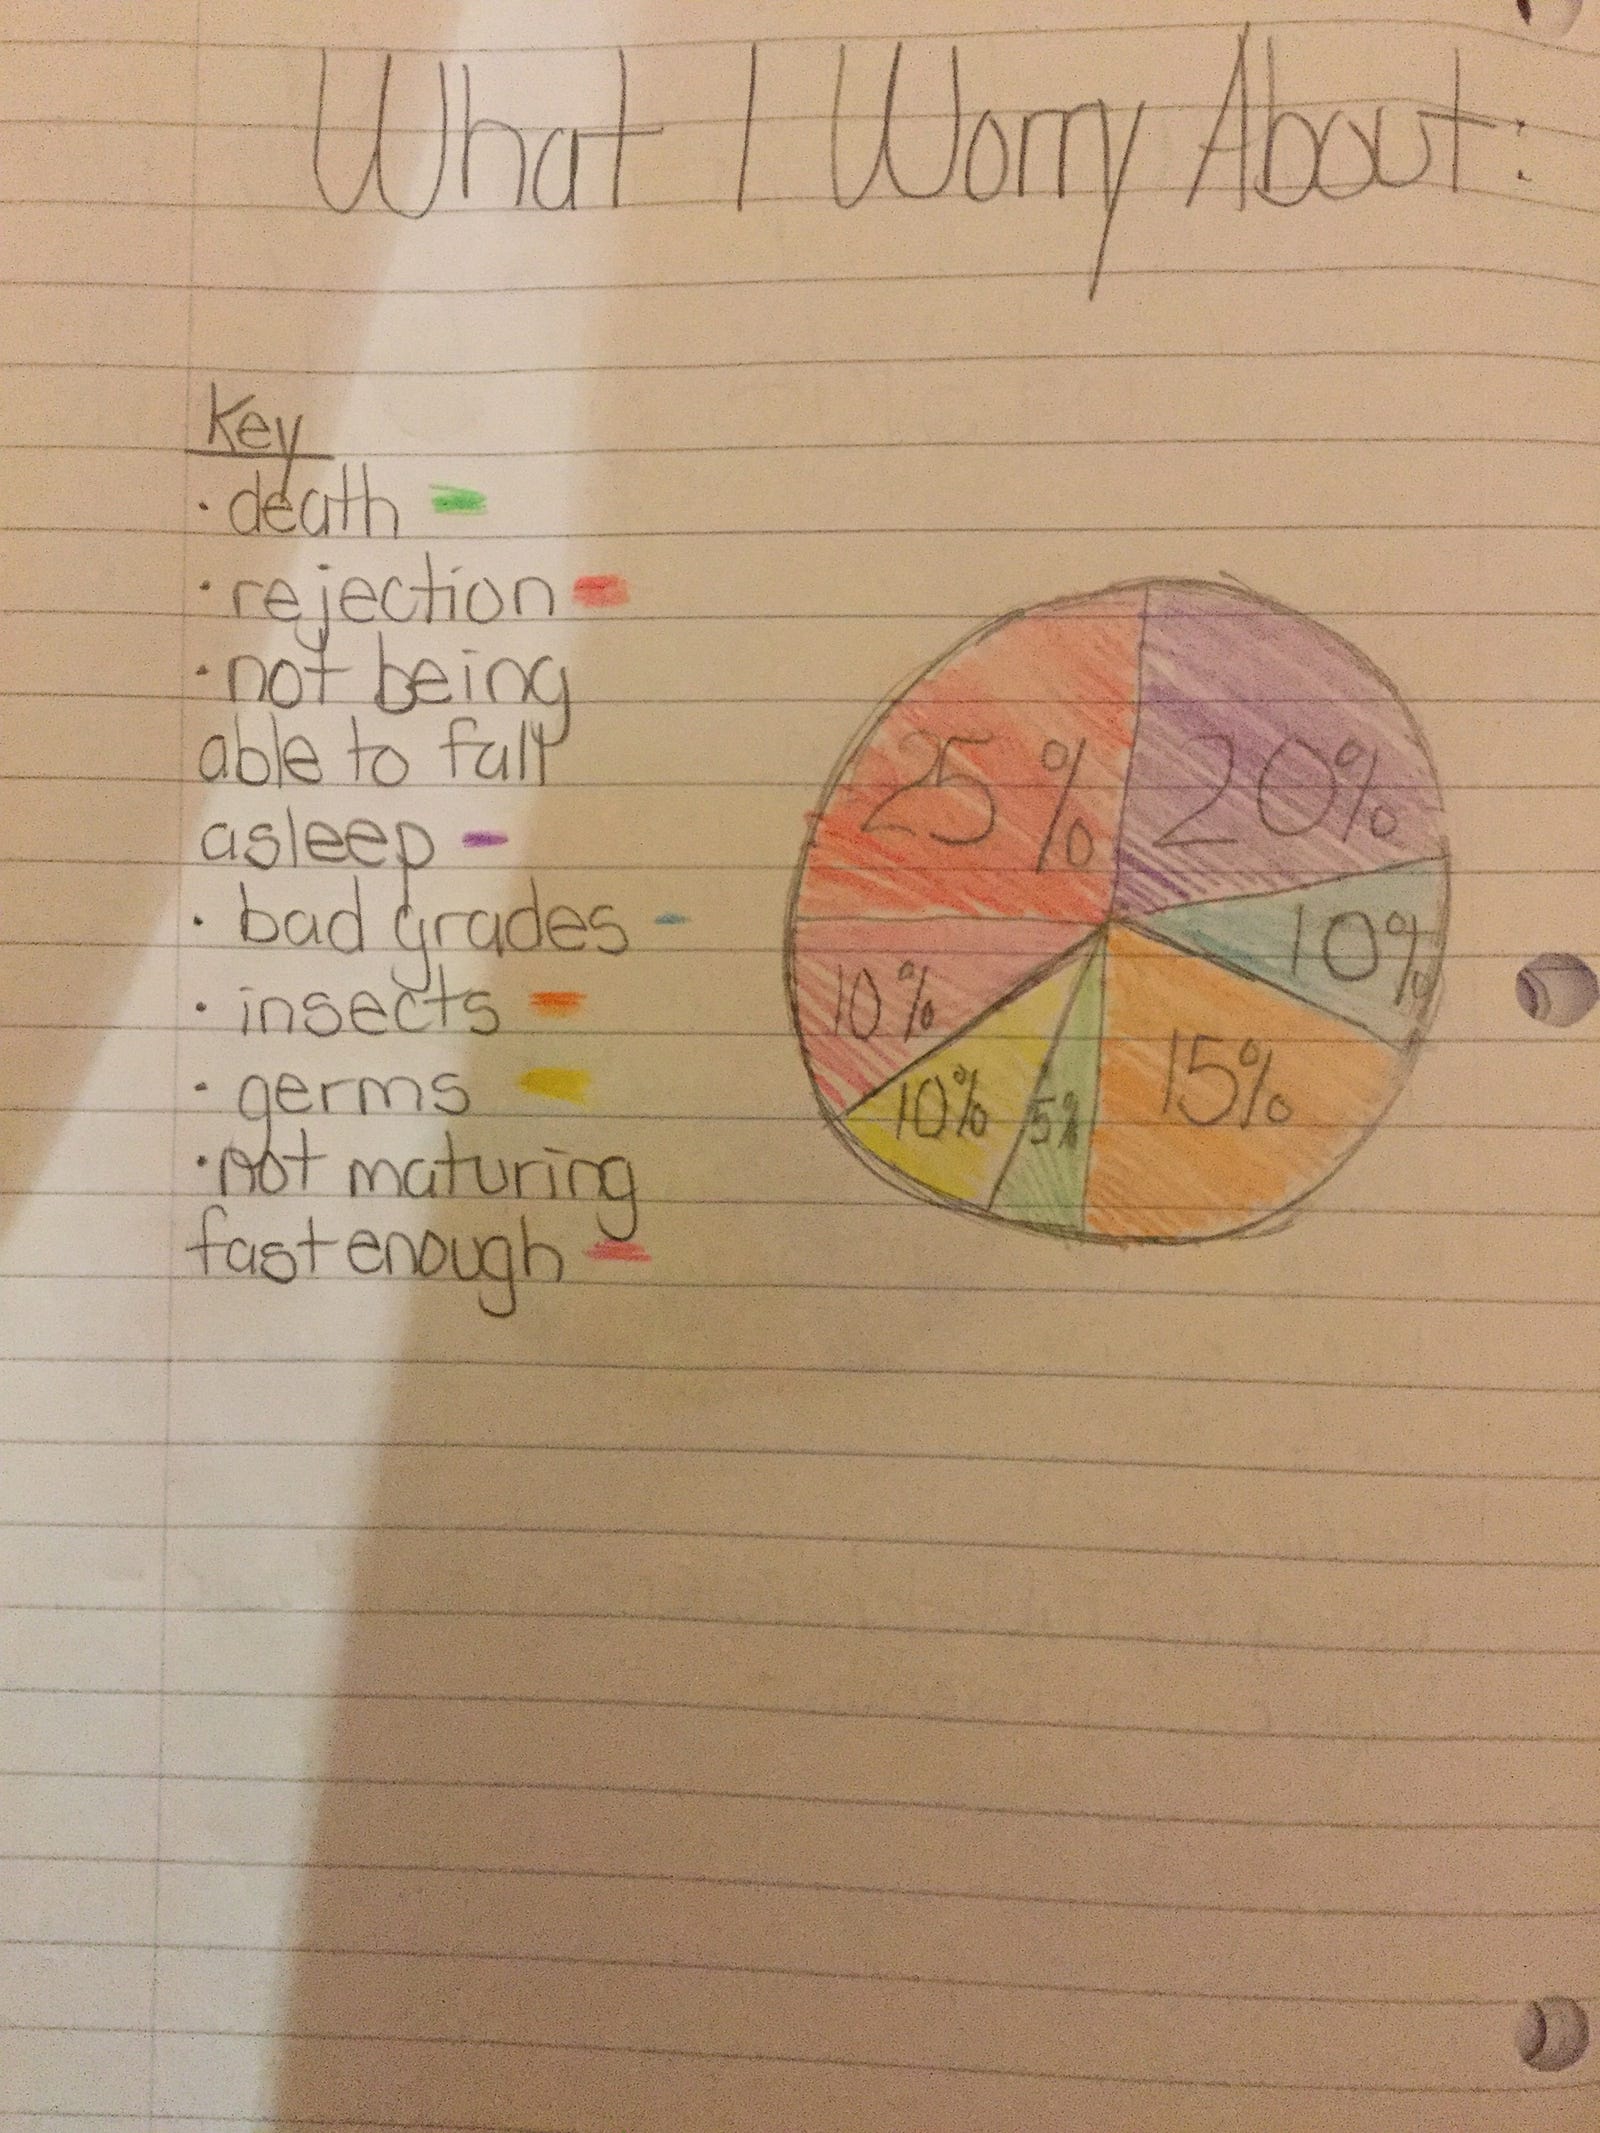 What I Worry About:
Key
· death
· rejection
· not being
able to fall
asleep
· bad grades
· insects
· germs
· not maturing
fast enough
25%
20%
10%
15%
5%
10%
10%